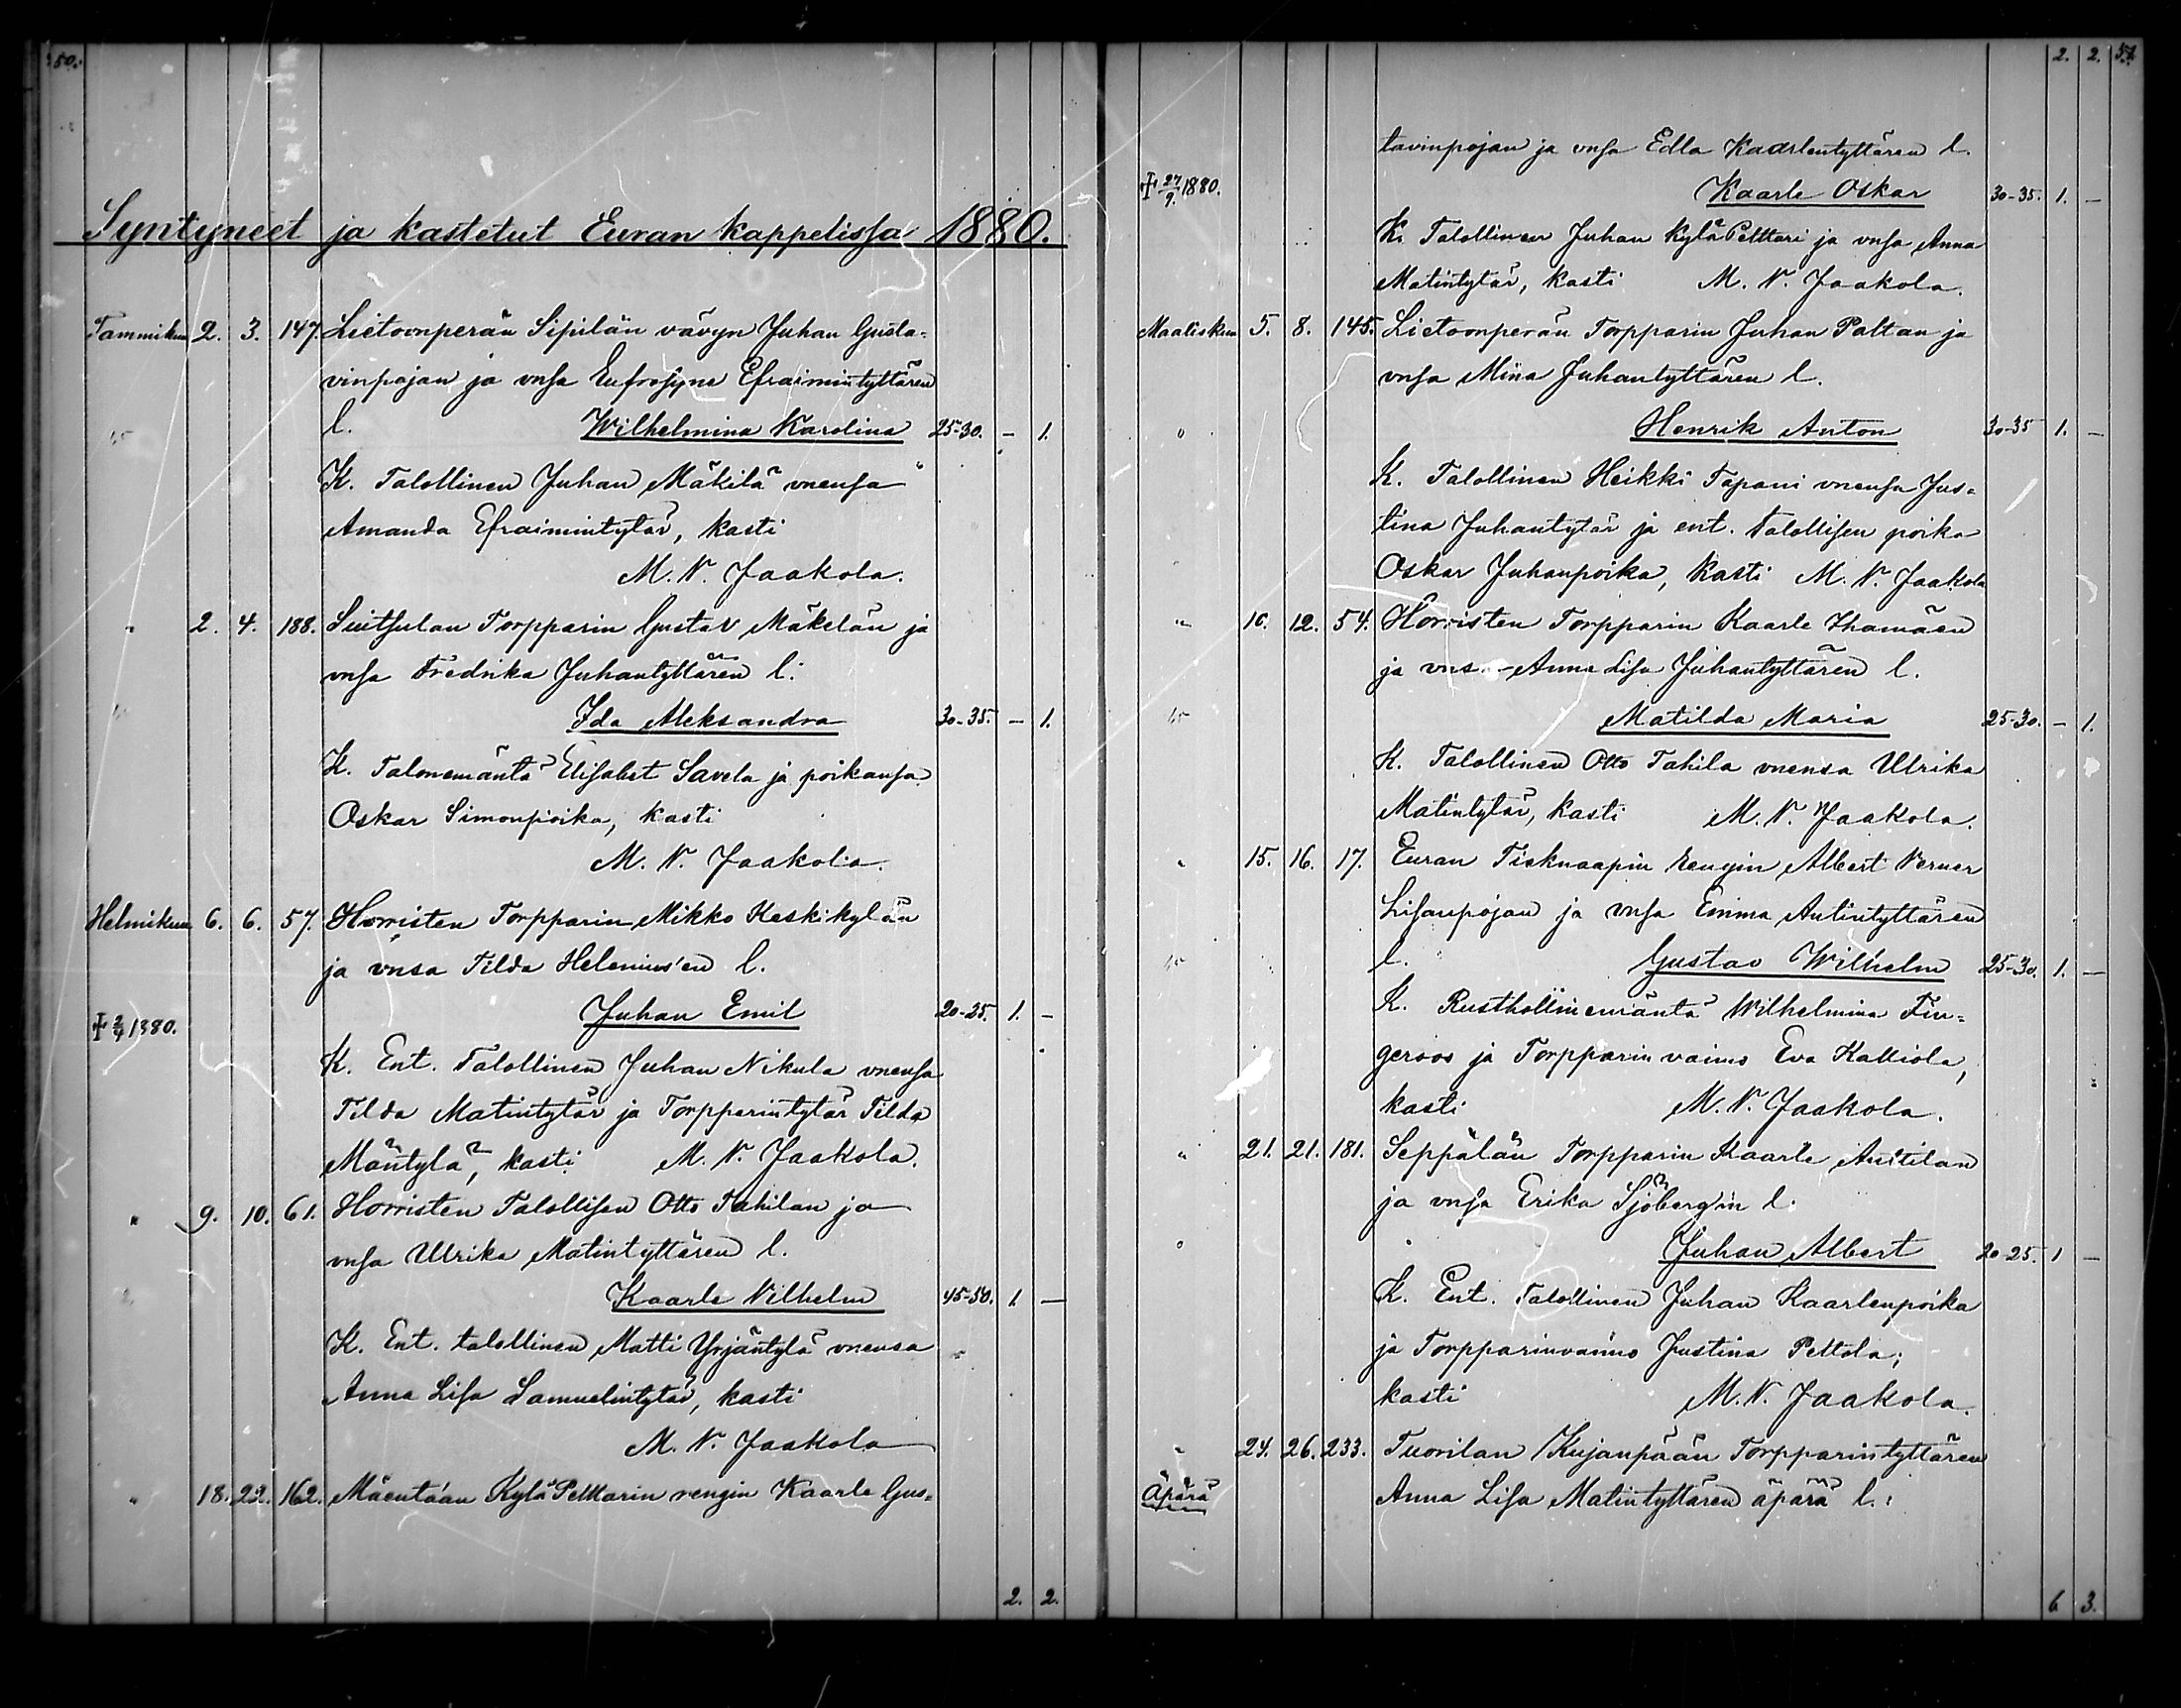 50.
Syntyneet ja kastetut Euran kappelissa 1880.
Tammikuu 2. 3. 147. Lietoonperän Sipilän vävyn Juhan Gusta-
vinpojan ja vnsa Eufrosyne Efraimintyttären
l. Wilhelmina Karolina 25-30. - 1.
K. Talollinen Juhan Mäkilä vnensa
Amanda Efraimintytär, kasti
M. V. Jaakola.
" 2. 4. 188. Suitsulan Torpparin Gustav Mäkelän ja
vnsa Fredrika Juhantyttären l.
Ida Aleksandra 30-35. - 1.
K. Talonemäntä Elisabet Savela ja poikansa
Oskar Simonpoika, kasti
M. V. Jaakola.
Helmikuu 6. 6. 57. Horristen Torpparin Mikko Keskikylän
ja vnsa Tilda Helenius'en l.
Juhan Emil 20-25. 1. -
+ 2/4 1880.
K. Ent. Talollinen Juhan Nikula vnensa
Tilda Matintytär ja Torpparintytär Tilda
Mäntylä, kasti M. V. Jaakola.
" 9. 10. 61. Horristen Talollisen Otto Tahilan ja
vnsa Ulrika Matintyttären l.
Kaarle Vilhelm 45-50. 1. -
K. Ent. talollinen Matti Yrjäntylä vnensa
Anna Lisa Samuelintytär, kasti
M. V. Jaakola
" 18. 22. 162. Mäentään Kylä Pelttarin rengin Kaarle Gus-
2. 2.
2. 2. 51.
tavinpojan ja vnsa Edla Kaarlentyttären l.
+ 27/9. 1880. Kaarle Oskar 30-35. 1. -
K. Talollinen Juhan Kylä Pelttari ja vnsa Anna
Matintytär, kasti M. V. Jaakola.
Maaliskuu 5. 8. 145. Lietoonperän Torpparin Juhan Paltan ja
vnsa Miina Juhantyttären l.
" Henrik Anton 30-35 1. -
K. Talollinen Heikki Tapani vnensa Jus-
tina Juhantytär ja ent. talollisen poika
Oskar Juhanpoika, kasti M. V. Jaakola
" 10. 12. 54. Horristen Torpparin Kaarle Ihamäen
ja vnsa Anna Lisa Juhantyttären l.
Matilda Maria 25-30. - 1.
K. Talollinen Otto Tahila vnensa Ulrika
Matintytär, kasti M. V. Jaakola.
" 15. 16. 17. Euran Tisknaapin rengin Albert Verner
Lisanpojan ja vnsa Emma Antintyttären
l. Gustav Wilhelm 25-30. 1. -
K. Rusthollinemäntä Wilhelmina Fin-
geroos ja Torpparin vaimo Eva Kalliola,
kasti M. V. Jaakola.
" 21. 21. 181. Seppälän Torpparin Kaarle Anttilan
ja vnsa Erika Sjöberg'in l.
Juhan Albert 20-25. 1 -
K. Ent. Talollinen Juhan Kaarlenpoika
ja Torpparinvaimo Justina Peltola;
kasti M. V. Jaakola.
" 24. 26. 233. Tuorilan Kujanpään Torpparintyttären
Äpärä Anna Lisa Matintyttären äpärä l.:
6 3.